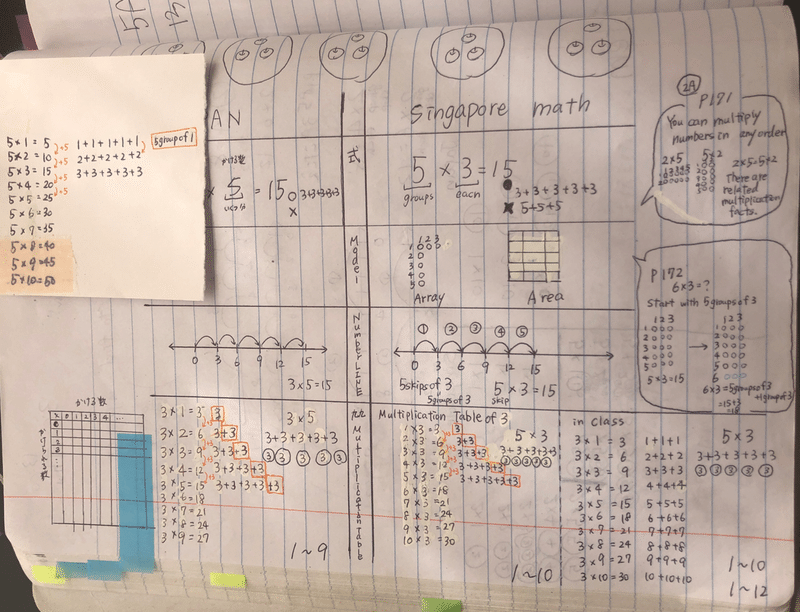 5×1=5
5×2=10
5×3=15
5×4=20
5×5=25
5×6=30
5×7=35
5×8=40
5×9=45
5×10=50
+5
+5
+5
+5
1+1+1+1+1
2+2+2+2+2
3+3+3+3+3
5group of 1
AN
式
Singapore math
かける数
× 5 = 15
3+3+3+3+3
×
5 × 3 = 15
groups
each
3+3+3+3+3
5+5+5
Model
1 2 3
1
2
3
4
5
Array
Area
Number LINE
0 3 6 9 12 15
3×5=15
① ② ③ ④ ⑤
0 3 6 9 12 15
5skips of 3
5groups of 3
5×3=15
skip
かける数
× 0 1 2 3 4 ...
0
1
2
3
かけられる数
3×1=3 3
3×2=6 3+3
3×3=9 3+3+3
3×4=12 3+3+3+3
3×5=15 3+3+3+3+3
3×6=18
3×7=21
3×8=24
3×9=27
3×5
3+3+3+3+3
③ ③ ③ ③ ③
1~9
九九
Multiplication table
Multiplication Table of 3
1×3=3 3
2×3=6 3+3
3×3=9 3+3+3
4×3=12 3+3+3+3
5×3=15 3+3+3+3+3
6×3=18
7×3=21
8×3=24
9×3=27
10×3=30
5×3
3+3+3+3+3
③③③③③
1~10
in class
3×1=3 1+1+1
3×2=6 2+2+2
3×3=9 3+3+3
3×4=12 4+4+4
3×5=15 5+5+5
3×6=18 6+6+6
3×7=21 7+7+7
3×8=24 8+8+8
3×9=27 9+9+9
3×10=30 10+10+10
5×3
3+3+3+3+3
③ ③ ③ ③ ③
1~10
1~12
2A
P171
You can multiply
numbers in any order
2×5 5×2
2×5=5×2
There are
related
multiplication
facts.
P172
6×3=?
Start with 5groups of 3
1 2 3
1
2
3
4
5
5×3=15
1 2 3
1
2
3
4
5
6
6×3=5groups of 3
+1group of 3
=15+3
=18